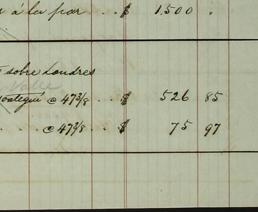 á la par . . $ 1.500 .
sobre Londres
@ 47 3/8 . . $ 526 85
. . @ 47 3/8 . . $ 75 97